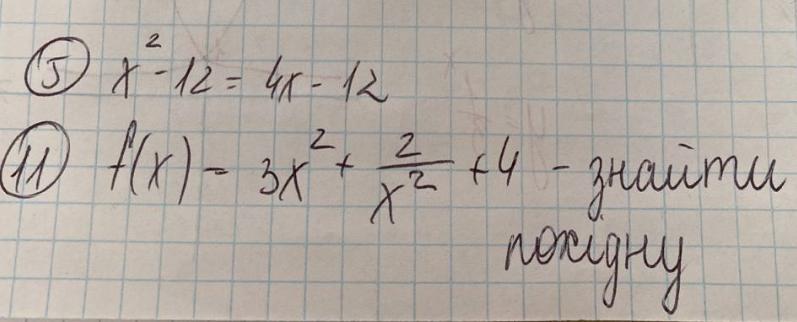 ⑤ x² - 12 = 4x - 12
⑪ f(x) = 3x² + 2/x² + 4 - знайти
похідну